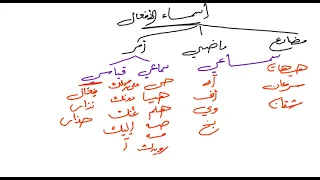 أسماء الأفعال
مضارع ماضي أمر
سماعي سماعي قياسي
هيهات أه عليك فعال
سرعان أف هيا دونك
شتان وي هلم عنك حذار
بخ صه إليك
مه
رويدك